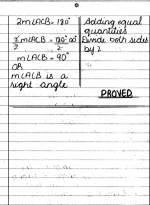 2m∠ACB = 180° Adding equal
quantities
2m∠ACB = 180° Divide both sides
2 2 by 2
m∠ACB = 90°
OR
m∠ACB is a
right angle
PROVED